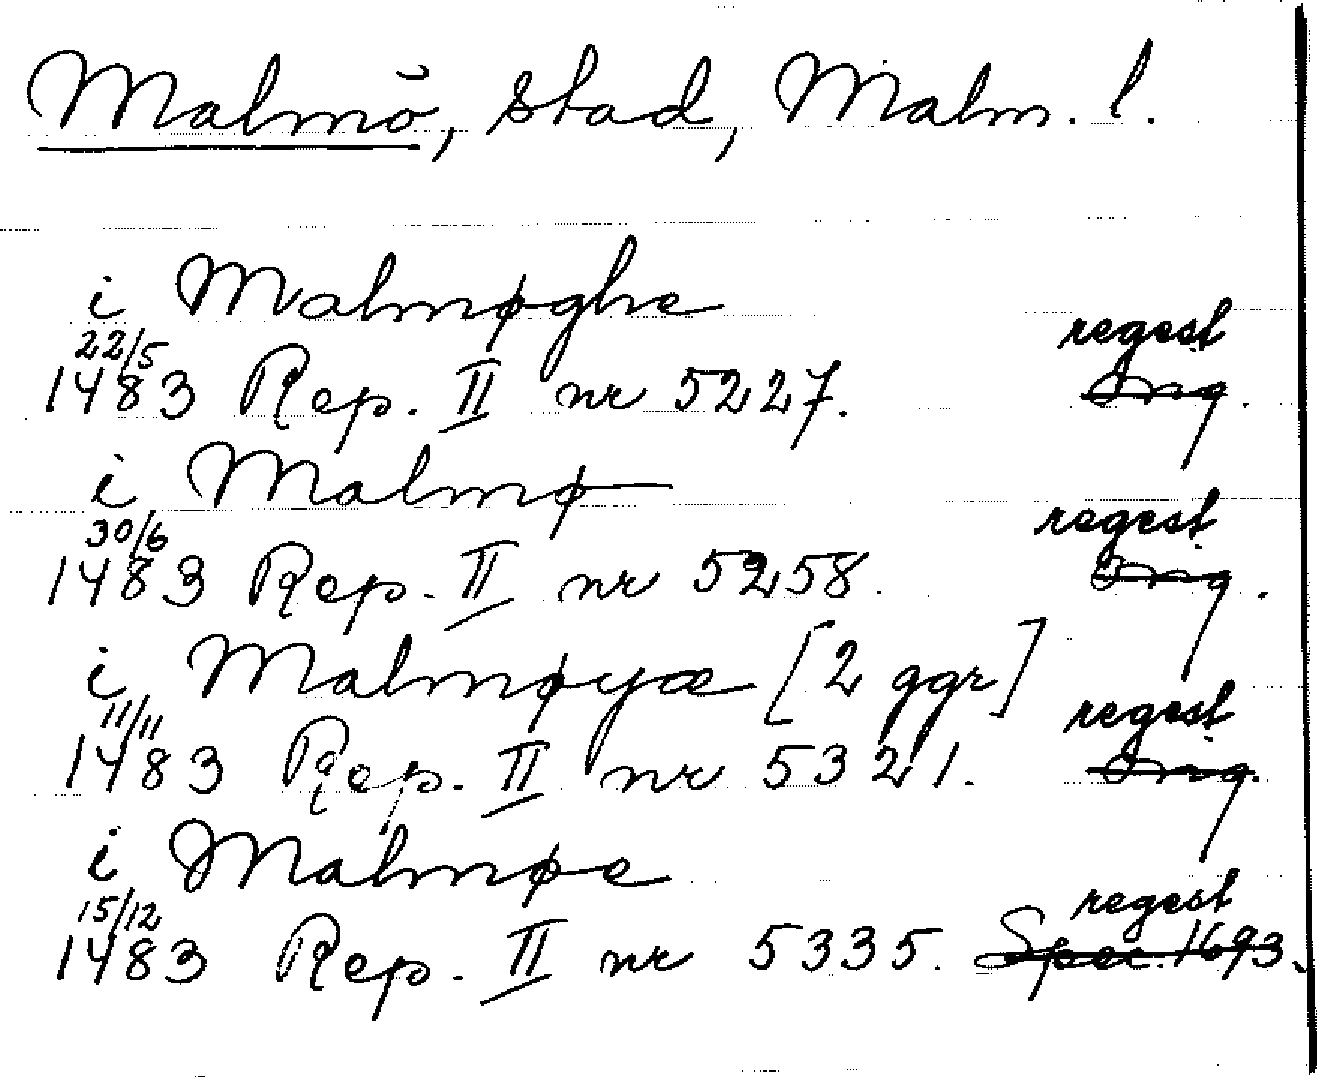 Malmö, stad, Malm. l.
i Malmøghe
22/5 regest
1483 Rep. II nr 5227. Orig.
i Malmø
30/6 regest
1483 Rep. II nr 5258. Orig.
i Malmøyæ [2 ggr]
11/11 regest
1483 Rep. II nr 5321. Orig.
i Malmøe
15/12 regest
1483 Rep. II nr 5335. Spec. 1693.